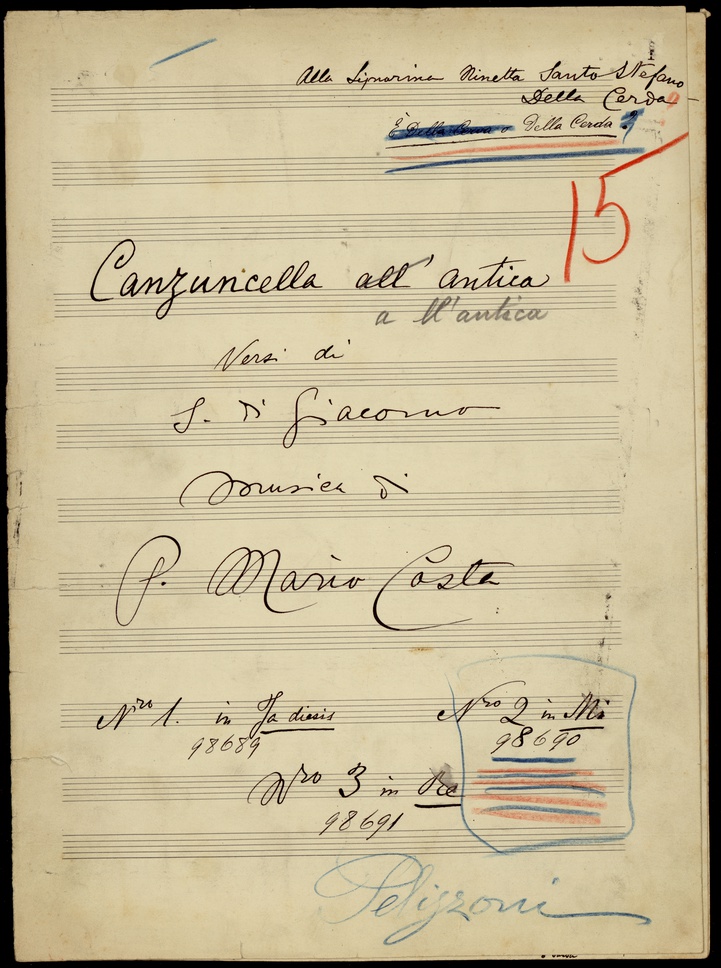 Alla Signorina Ninetta Santo Stefano
Della Cerda
È Della Cerva o Della Cerda ?
15
Canzuncella all' antica
a ll'antica
Versi di
S. Di Giacomo
Musica di
P. Mario Costa
Nro 1. in Fa diesis
98689
Nro 2 in Mi
98690
Nro 3 in Re
98691
Pelizzoni